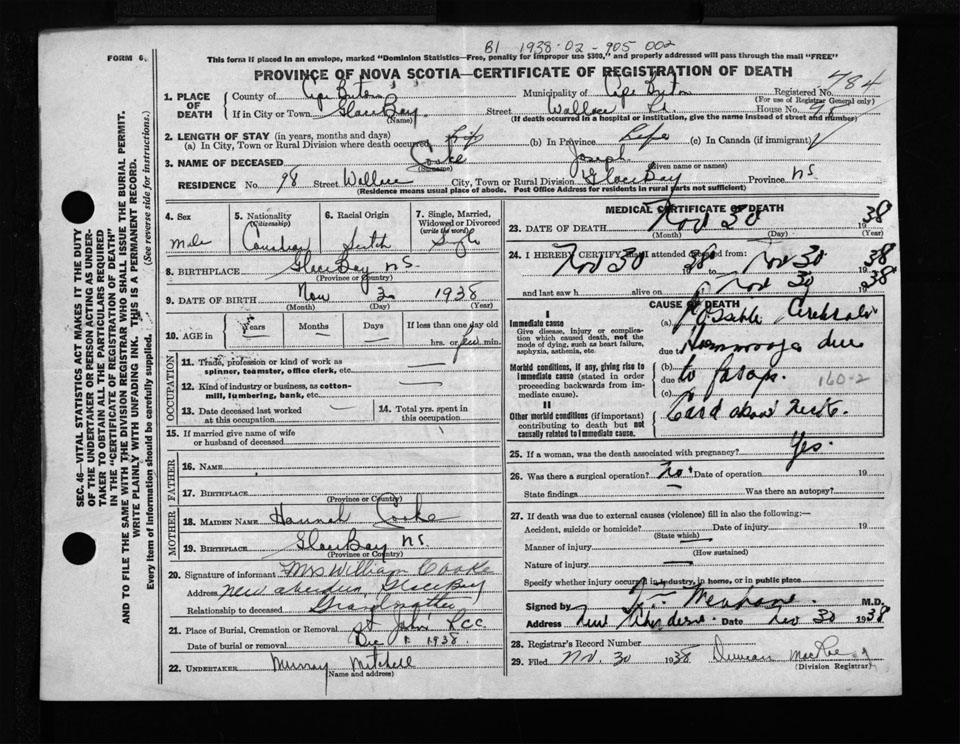 B1 1938-02-905 002
FORM 6.
This form if placed in an envelope, marked "Dominion Statistics—Free, penalty for improper use $300," and properly addressed will pass through the mail "FREE"
PROVINCE OF NOVA SCOTIA—CERTIFICATE OF REGISTRATION OF DEATH
784
1. PLACE OF DEATH
County of Cape Breton Municipality of Cape Breton Registered No.
(For use of Registrar General only)
If in City or Town Glace Bay Street Wallace Rd. House No. 98
(Name) (If death occurred in a hospital or institution, give the name instead of street and number)
2. LENGTH OF STAY (in years, months and days)
(a) In City, Town or Rural Division where death occurred Life (b) In Province Life (c) In Canada (if immigrant)
3. NAME OF DECEASED Cooke Joseph
(Surname) (Given name or names)
RESIDENCE No. 98 Street Wallace City, Town or Rural Division Glace Bay Province NS
(Residence means usual place of abode. Post Office Address for residents in rural parts not sufficient)
4. Sex Male
5. Nationality (Citizenship) Canadian
6. Racial Origin
7. Single, Married, Widowed or Divorced (write the word) Single
8. BIRTHPLACE Glace Bay NS
(Province or Country)
9. DATE OF BIRTH Nov 1938
(Month) (Day) (Year)
10. AGE in Years Months Days If less than one day old
hrs. or few min.
OCCUPATION
11. Trade, profession or kind of work as spinner, teamster, office clerk, etc.
12. Kind of industry or business, as cotton-mill, lumbering, bank, etc.
13. Date deceased last worked at this occupation
14. Total yrs. spent in this occupation
15. If married give name of wife or husband of deceased
FATHER
16. Name
17. Birthplace
(Province or Country)
MOTHER
18. Maiden Name Hannah Cooke
19. Birthplace Glace Bay NS
(Province or Country)
20. Signature of informant Mrs William Cooke
Address New Aberdeen, Glace Bay
Relationship to deceased Grandmother
21. Place of Burial, Cremation or Removal St John RCC
Date of burial or removal Dec 1 1938
22. UNDERTAKER Murray Mitchell
(Name and address)
MEDICAL CERTIFICATE OF DEATH
23. DATE OF DEATH Nov 30 1938
(Month) (Day) (Year)
24. I HEREBY CERTIFY that I attended deceased from:
Nov 30 1938 to Nov 30 1938
and last saw h alive on Nov 30 1938
CAUSE OF DEATH
I
Immediate cause
Give disease, injury or complication which caused death, not the mode of dying, such as heart failure, asphyxia, asthenia, etc.
(a) Possible Cerebral
due Hemorrhage due
Morbid conditions, if any, giving rise to Immediate cause (stated in order proceeding backwards from immediate cause).
(b) to forceps.
due
160-2
(c)
II
Other morbid conditions (if important) contributing to death but not causally related to Immediate cause.
25. If a woman, was the death associated with pregnancy? Yes.
26. Was there a surgical operation? No. Date of operation 19
State findings Was there an autopsy?
27. If death was due to external causes (violence) fill in also the following:—
Accident, suicide or homicide? Date of injury 19
(State which)
Manner of injury
(How sustained)
Nature of injury
Specify whether injury occurred in industry, in home, or in public place
Signed by M.D.
Address New Aberdeen Date Nov 30 1938
28. Registrar's Record Number
29. Filed Nov. 30 1938 Duncan MacRae
(Division Registrar)
SEC. 46—VITAL STATISTICS ACT MAKES IT THE DUTY
OF THE UNDERTAKER OR PERSON ACTING AS UNDER-
TAKER TO OBTAIN ALL THE PARTICULARS REQUIRED
IN THE "CERTIFICATE OF REGISTRATION OF DEATH"
AND TO FILE THE SAME WITH THE DIVISION REGISTRAR WHO SHALL ISSUE THE BURIAL PERMIT.
WRITE PLAINLY WITH UNFADING INK. THIS IS A PERMANENT RECORD.
Every item of information should be carefully supplied. (See reverse side for instructions.)